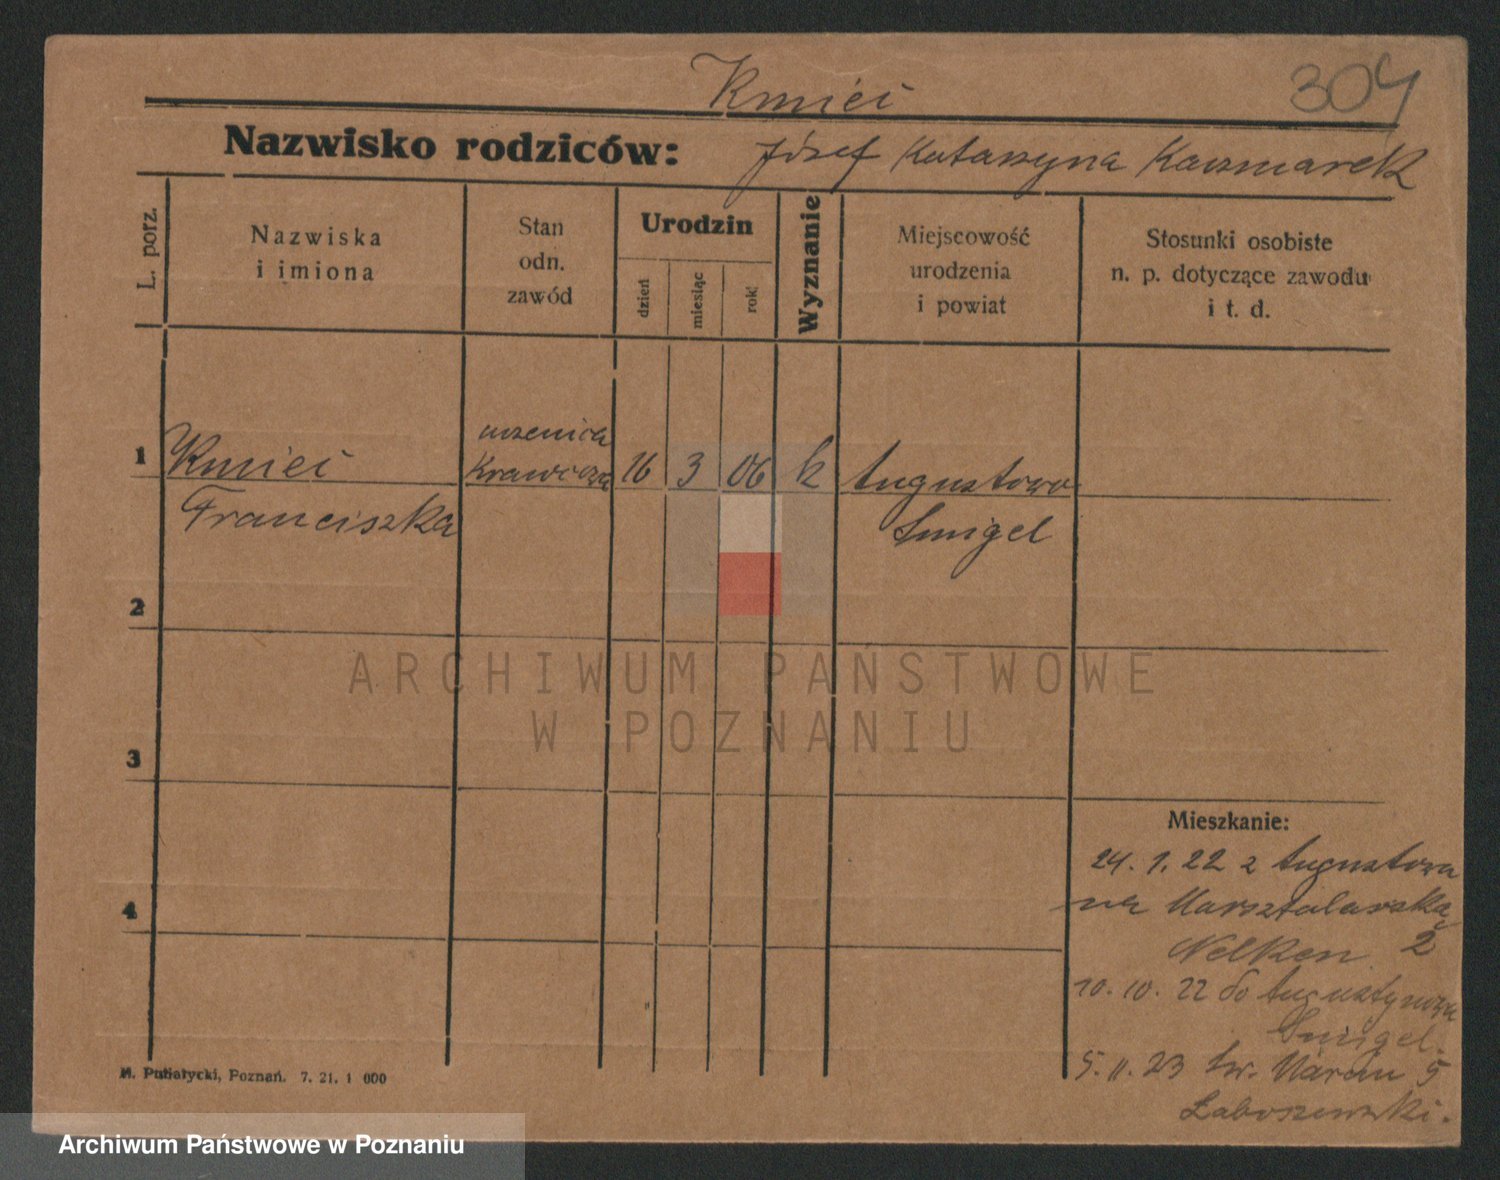 Kmieć
304
Nazwisko rodziców: Józef Katarzyna Kaczmarek
L. porz.
Nazwiska
i imiona
Stan
odn.
zawód
Urodzin
dzień
miesiąc
rok
Wyznanie
Miejscowość
urodzenia
i powiat
Stosunki osobiste
n. p. dotyczące zawodu
i t. d.
uczenica
1 Kmieć Krawiecka 16 3 06 k Augustowo
Franciszka Śmigel
2
ARCHIWUM PAŃSTWOWE
W POZNANIU
3
Mieszkanie:
24. 1. 22 z Augustowa
4
na Marsztalarska
Nelken 2
10. 10. 22 do
Śmigel.
5. 11. 23 Św. Marcin 5
Laboszewski.
M. Putiatycki, Poznań. 7. 21. 1 000
Archiwum Państwowe w Poznaniu